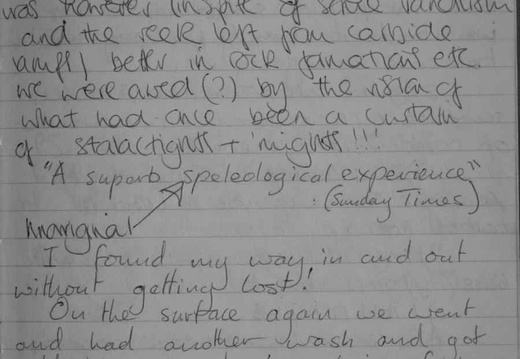 was however (inspite of some vandalism
and the reek left from carbide
amply better in rock formations etc.
we were awed (?) by the vision of
what had once been a curtain
of stalactights + 'mights !!!
"A suparb speleological experience"
(Sunday Times)
Anarginal
I found my way in and out
without getting lost!
On the surface again we went
and had another wash and got